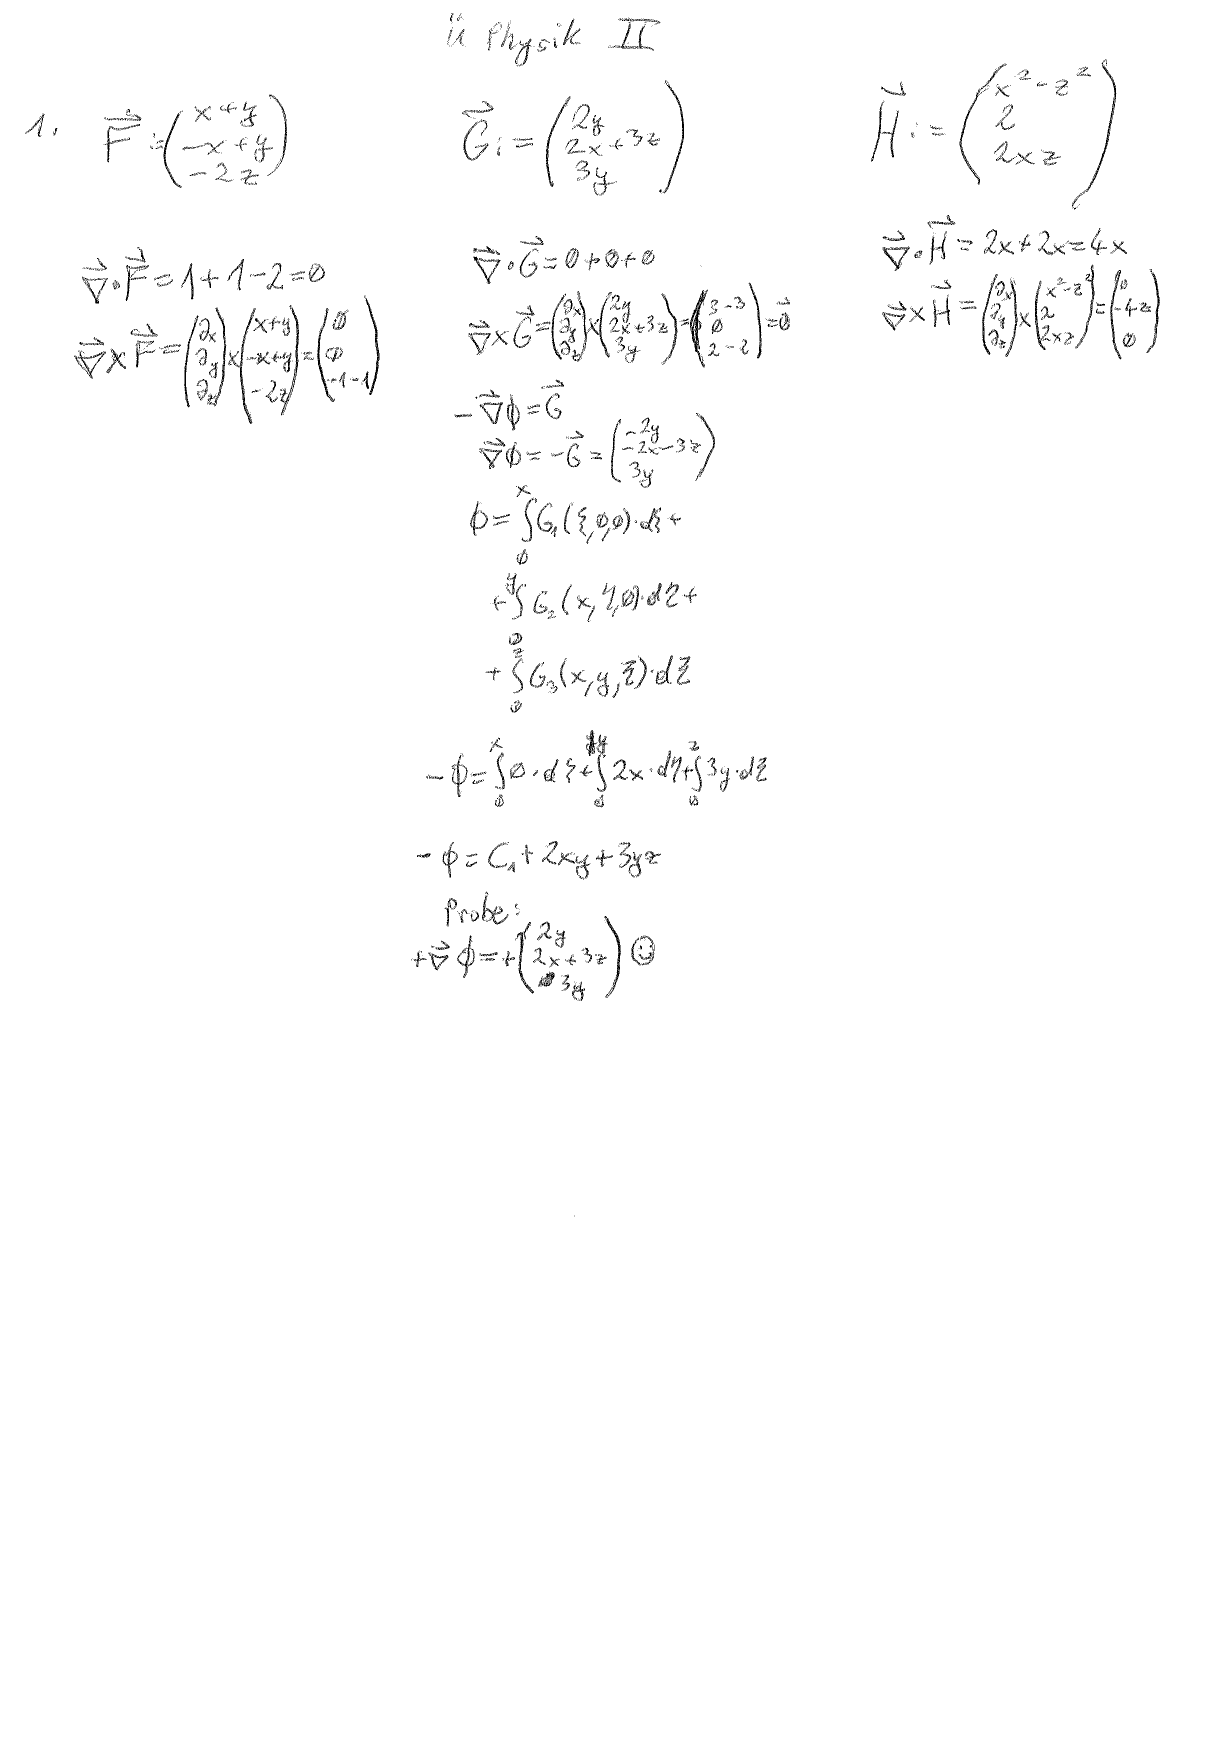 ü Physik II
1. F⃗ := (x+y, -x+y, -2z)
∇⃗·F⃗ = 1+1-2=0
∇⃗×F⃗ = (∂x, ∂y, ∂z) × (x+y, -x+y, -2z) = (0, 0, -1-1)
G⃗ := (2y, 2x+3z, 3y)
∇⃗·G⃗ = 0+0+0
∇⃗×G⃗ = (∂x, ∂y, ∂z) × (2y, 2x+3z, 3y) = (3-3, 0, 2-2) = 0⃗
-∇⃗ϕ = G⃗
∇⃗ϕ = -G⃗ = (-2y, -2x-3z, 3y)
ϕ = ∫₀ˣ G₁(ξ,0,0)·dξ +
+ ∫₀ʸ G₂(x,η,0)·dη +
+ ∫₀ᶻ G₃(x,y,ξ)·dξ
-ϕ = ∫₀ˣ 0·dξ + ∫₀ʸ 2x·dη + ∫₀ᶻ 3y·dξ
-ϕ = C₁ + 2xy + 3yz
Probe:
+∇⃗ϕ = +(2y, 2x+3z, 3y) ☺
H⃗ := (x²-z², 2, 2xz)
∇⃗·H⃗ = 2x+2x=4x
∇⃗×H⃗ = (∂x, ∂y, ∂z) × (x²-z², 2, 2xz) = (0, -4z, 0)